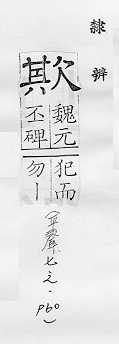 隸辨
欺
魏元
丕碑
犯而
勿｜
(平聲七之·p60)